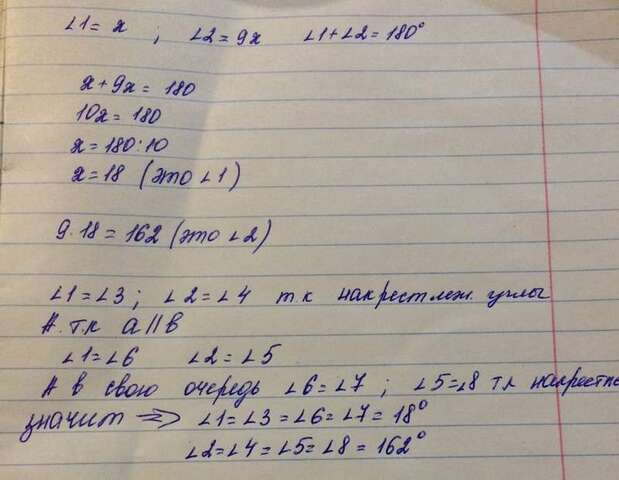 ∠1 = x ; ∠2 = 9x ∠1 + ∠2 = 180°
x + 9x = 180
10x = 180
x = 180:10
x = 18 (это ∠1)
9·18 = 162 (это ∠2)
∠1 = ∠3; ∠2 = ∠4 т.к накрестлеж. углы
А т.к a || b
∠1 = ∠6 ∠2 = ∠5
А в свою очередь ∠6 = ∠7 ; ∠5 = ∠8 т.к накрестле
значит => ∠1 = ∠3 = ∠6 = ∠7 = 18°
∠2 = ∠4 = ∠5 = ∠8 = 162°